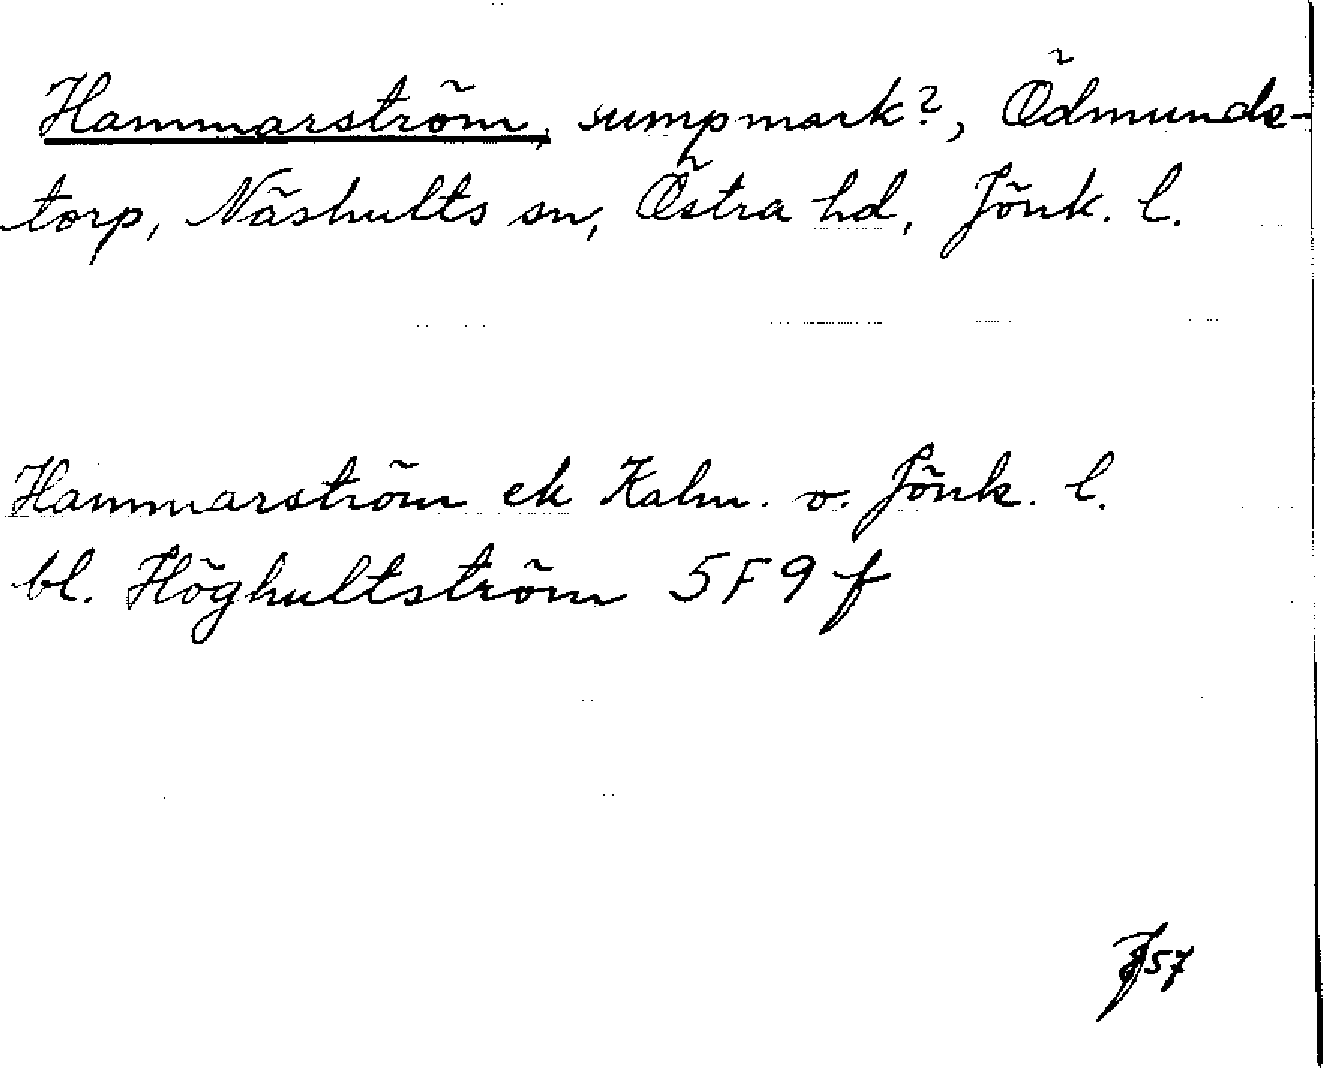 Hammarström, sumpmark?, Ödmunds-
torp, Näshults sn, Östra hd, Jönk. l.
Hammarström ek Kalm. o. Jönk. l.
bl. Höghultström 5F9f
57